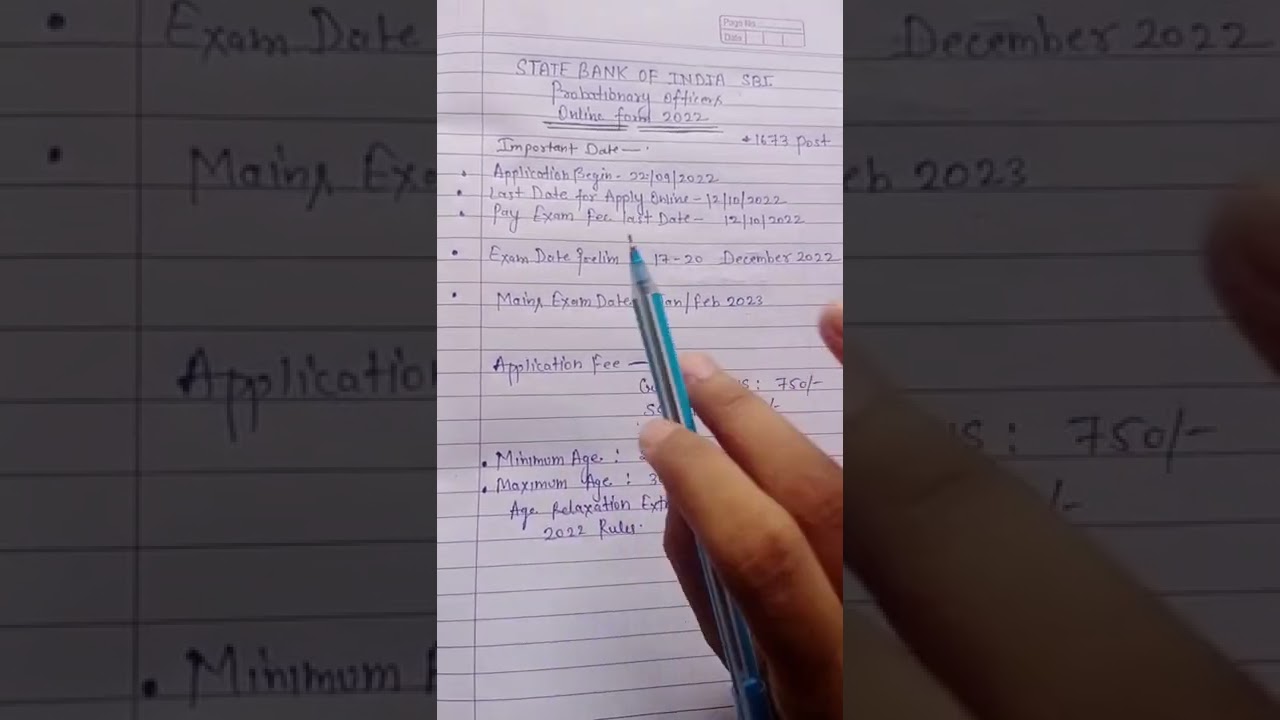 Page No.
Date
STATE BANK OF INDIA SBI.
Probationary officers
Online form 2022
*1673 post
Important Date—.
• Application Begin - 22/09/2022
• Last Date for Apply Online - 12/10/2022
• Pay Exam Fee last Date - 12/10/2022
• Exam Date Prelim 17-20 December 2022
• Mains Exam Date Jan/Feb 2023
Application Fee —
: 750/-
/-
• Minimum Age :
• Maximum Age : 3
Age Relaxation
2022 Rules.
Exam Date
December 2022
Mains
Feb 2023
Application
: 750/-
/-
• Minimum